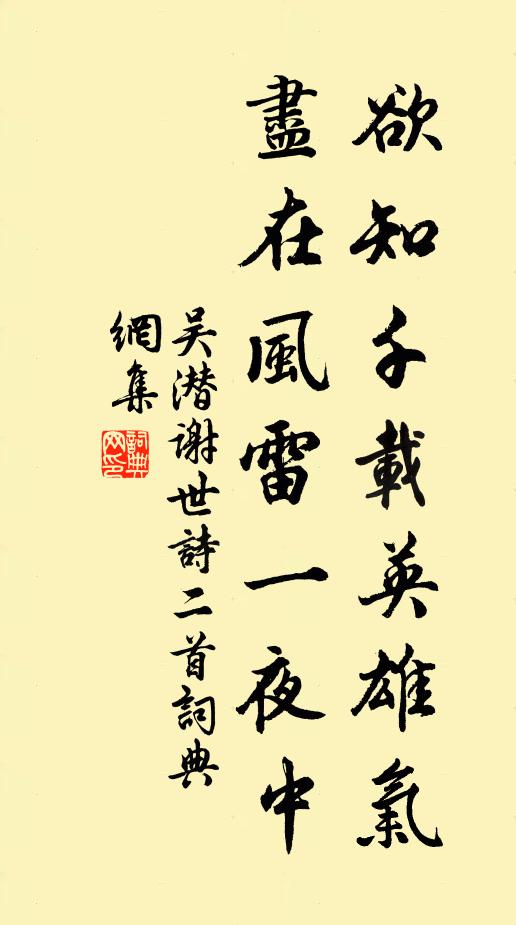 欲知千載英雄氣
盡在風雷一夜中
吴潜謝世詩二首詞典
網集
詞典網印